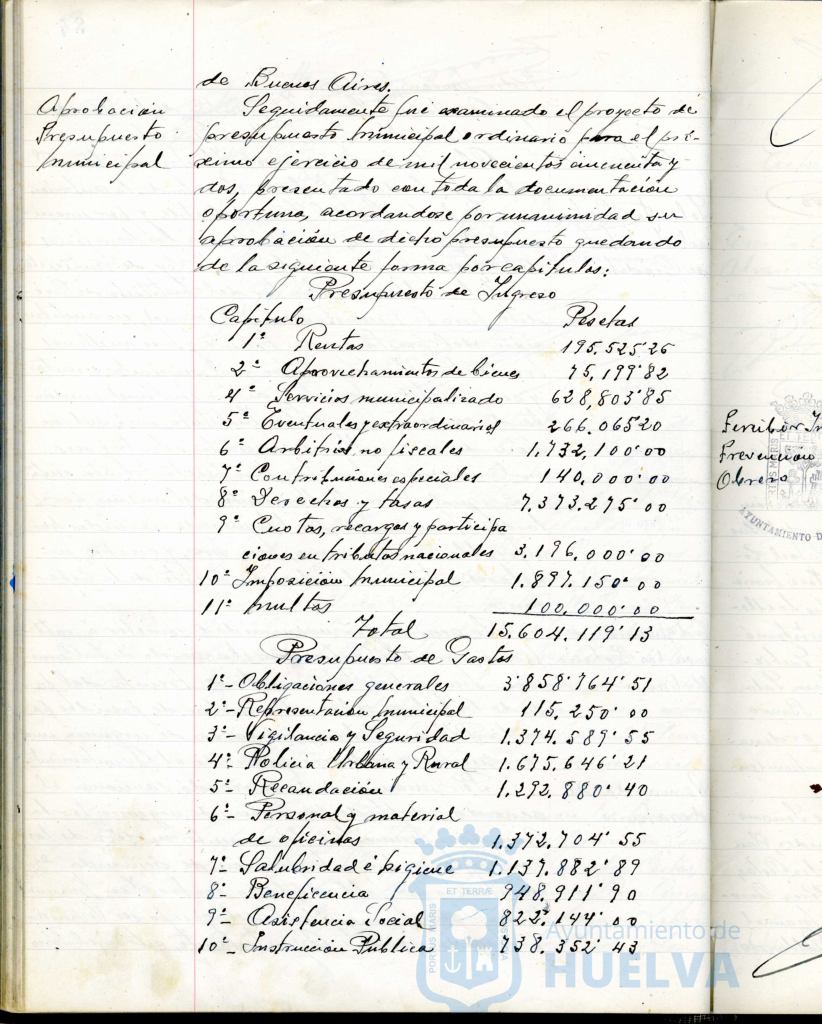 de Buenos Aires.
Aprobación
Presupuesto
municipal
Seguidamente fué examinado el proyecto de
presupuesto municipal ordinario para el pró-
ximo ejercicio de mil novecientos cincuenta y
dos, presentado con toda la documentación
oportuna, acordandose por unanimidad su
aprobación de dicho presupuesto quedando
de la siguiente forma por capitulos:
Presupuesto de Ingreso
Capítulo Pesetas
1º Rentas 195.525'26
2º Aprovechamientos de bienes 75,199'82
4º Servicios municipalizado 628,803'85
5º Eventuales y extraordinarios 266.065'20
6º Arbitrios no fiscales 1,732,100'00
7º Contribuciones especiales 140.000'00
8º Derechos y tasas 7.373.275'00
9º Cuotas, recargos y participa
ciones en tributos nacionales 3.196.000'00
10º Imposición municipal 1.897.150'00
11º multas 100,000'00
Total 15.604.119'13
Presupuesto de Gastos
1º- Obligaciones generales 3'858'764'51
2º- Representación municipal 115.250'00
3º- Vigilancia y Seguridad 1.374.589'55
4º- Policia Urbana y Rural 1.675.646'21
5º- Recaudación 1.292.880'40
6º- Personal y material
de oficinas 1.372.704'55
7º- Salubridad é higiene 1.137.882'89
8º- Beneficencia 948.911'90
9º- Asistencia Social 822.144'00
10º- Instrucción Publica 738.352'43
Prevención
Obrero
AYUNTAMIENTO D
PORTUS MARIS ET TERRÆ
Ayuntamiento de
HUELVA